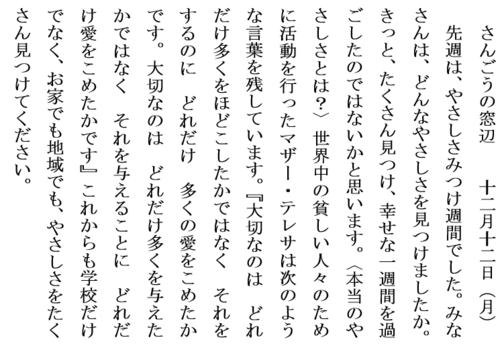 さんごうの窓辺　　十二月十二日（月）
　先週は、やさしさみつけ週間でした。みな
さんは、どんなやさしさを見つけましたか。
きっと、たくさん見つけ、幸せな一週間を過
ごしたのではないかと思います。〈本当のや
さしさとは？〉世界中の貧しい人々のため
に活動を行ったマザー・テレサは次のよう
な言葉を残しています。『大切なのは　どれ
だけ多くをほどこしたかではなく　それを
するのに　どれだけ　多くの愛をこめたか
です。大切なのは　どれだけ多くを与えた
かではなく　それを与えることに　どれだ
け愛をこめたかです』これからも学校だけ
でなく、お家でも地域でも、やさしさをたく
さん見つけてください。